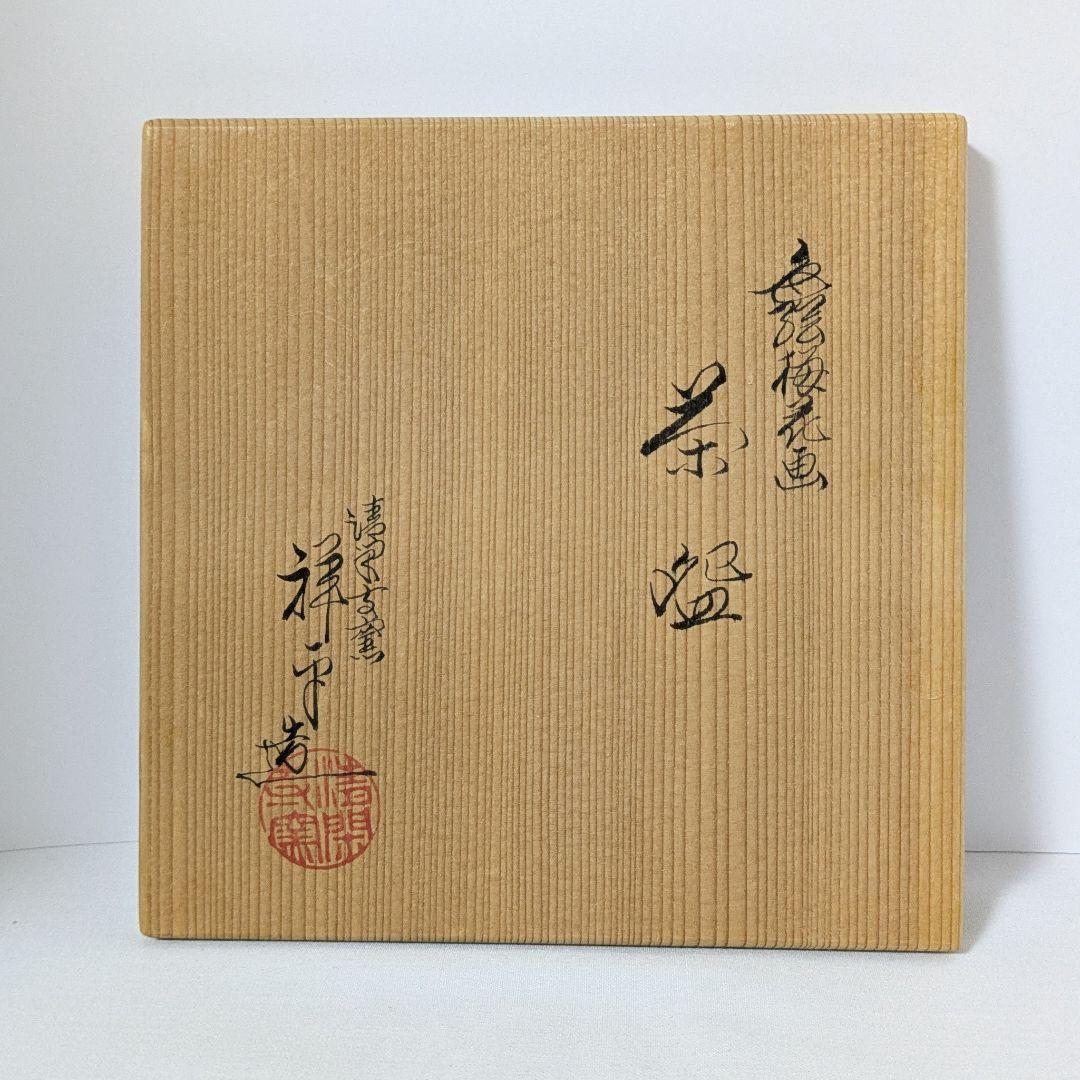 色絵梅花画
茶盌
清閑寺窯
祥平造
清閑寺窯